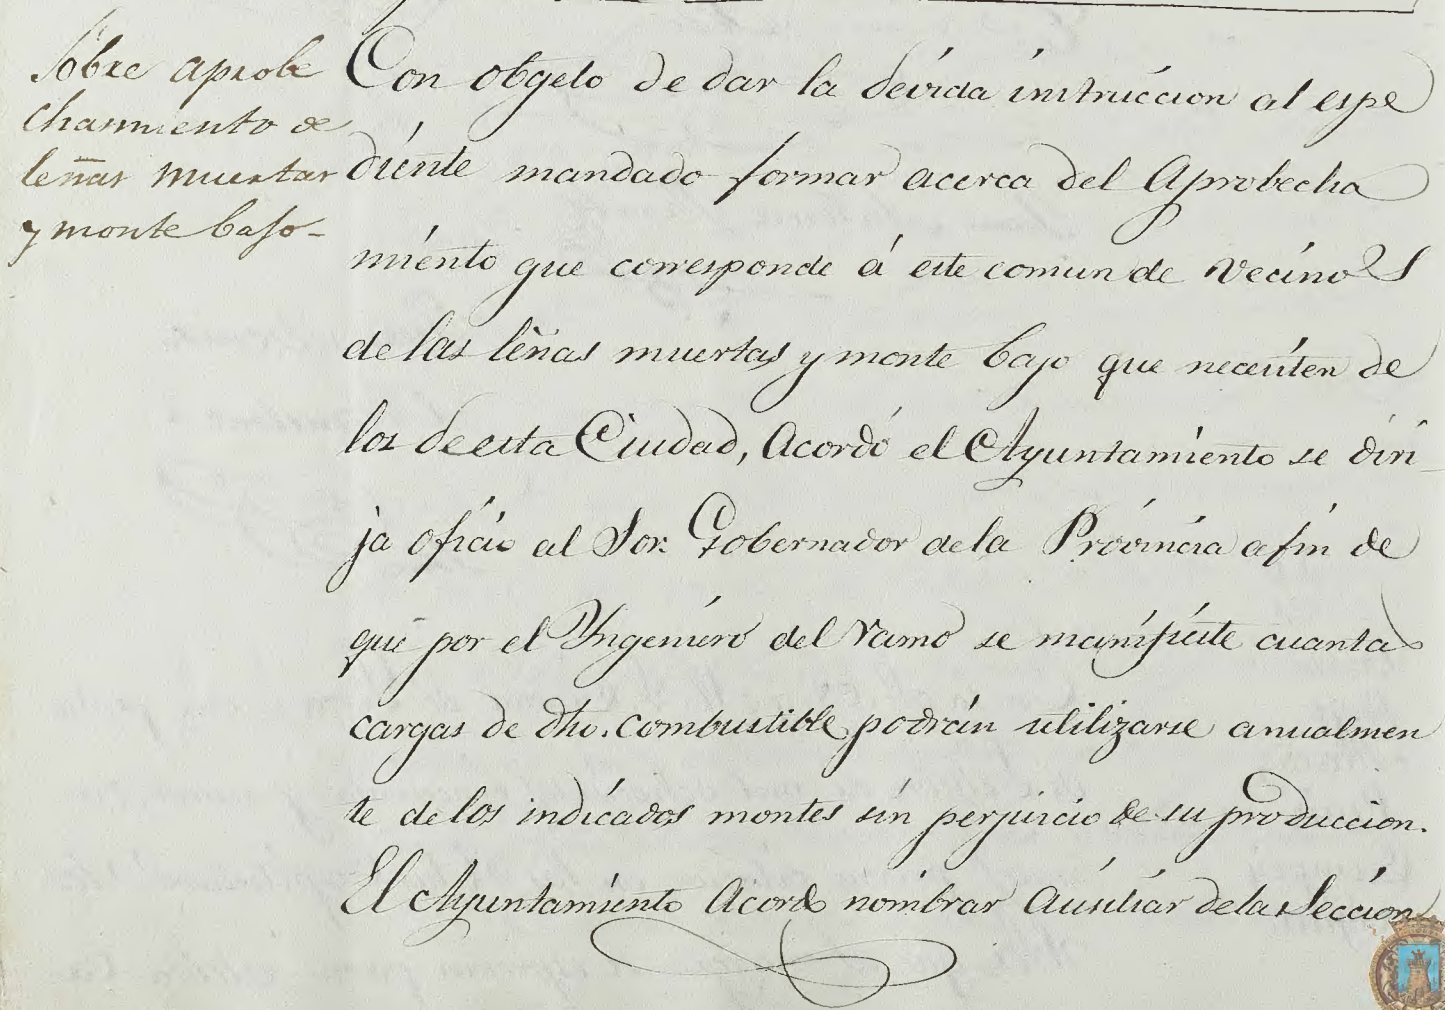 Sobre aprobe
chamiento de
leñas muertas
y monte bajo-
Con obgeto de dar la devida instruccion al espe
diente mandado formar acerca del Aprobecha
miento que corresponde á este comun de vecinos
de las leñas muertas y monte bajo que necesiten de
los de esta Ciudad, Acordó el Ayuntamiento se diri
ja oficio al Sor. Gobernador de la Provincia a fin de
que por el Yngeniero del ramo se manifieste cuanta
cargas de dho. combustible podrán utilizarse anualmen
te de los indicados montes sin perjuicio de su produccion.
El Ayuntamiento Acordo nombrar Ausiliar de la Seccion